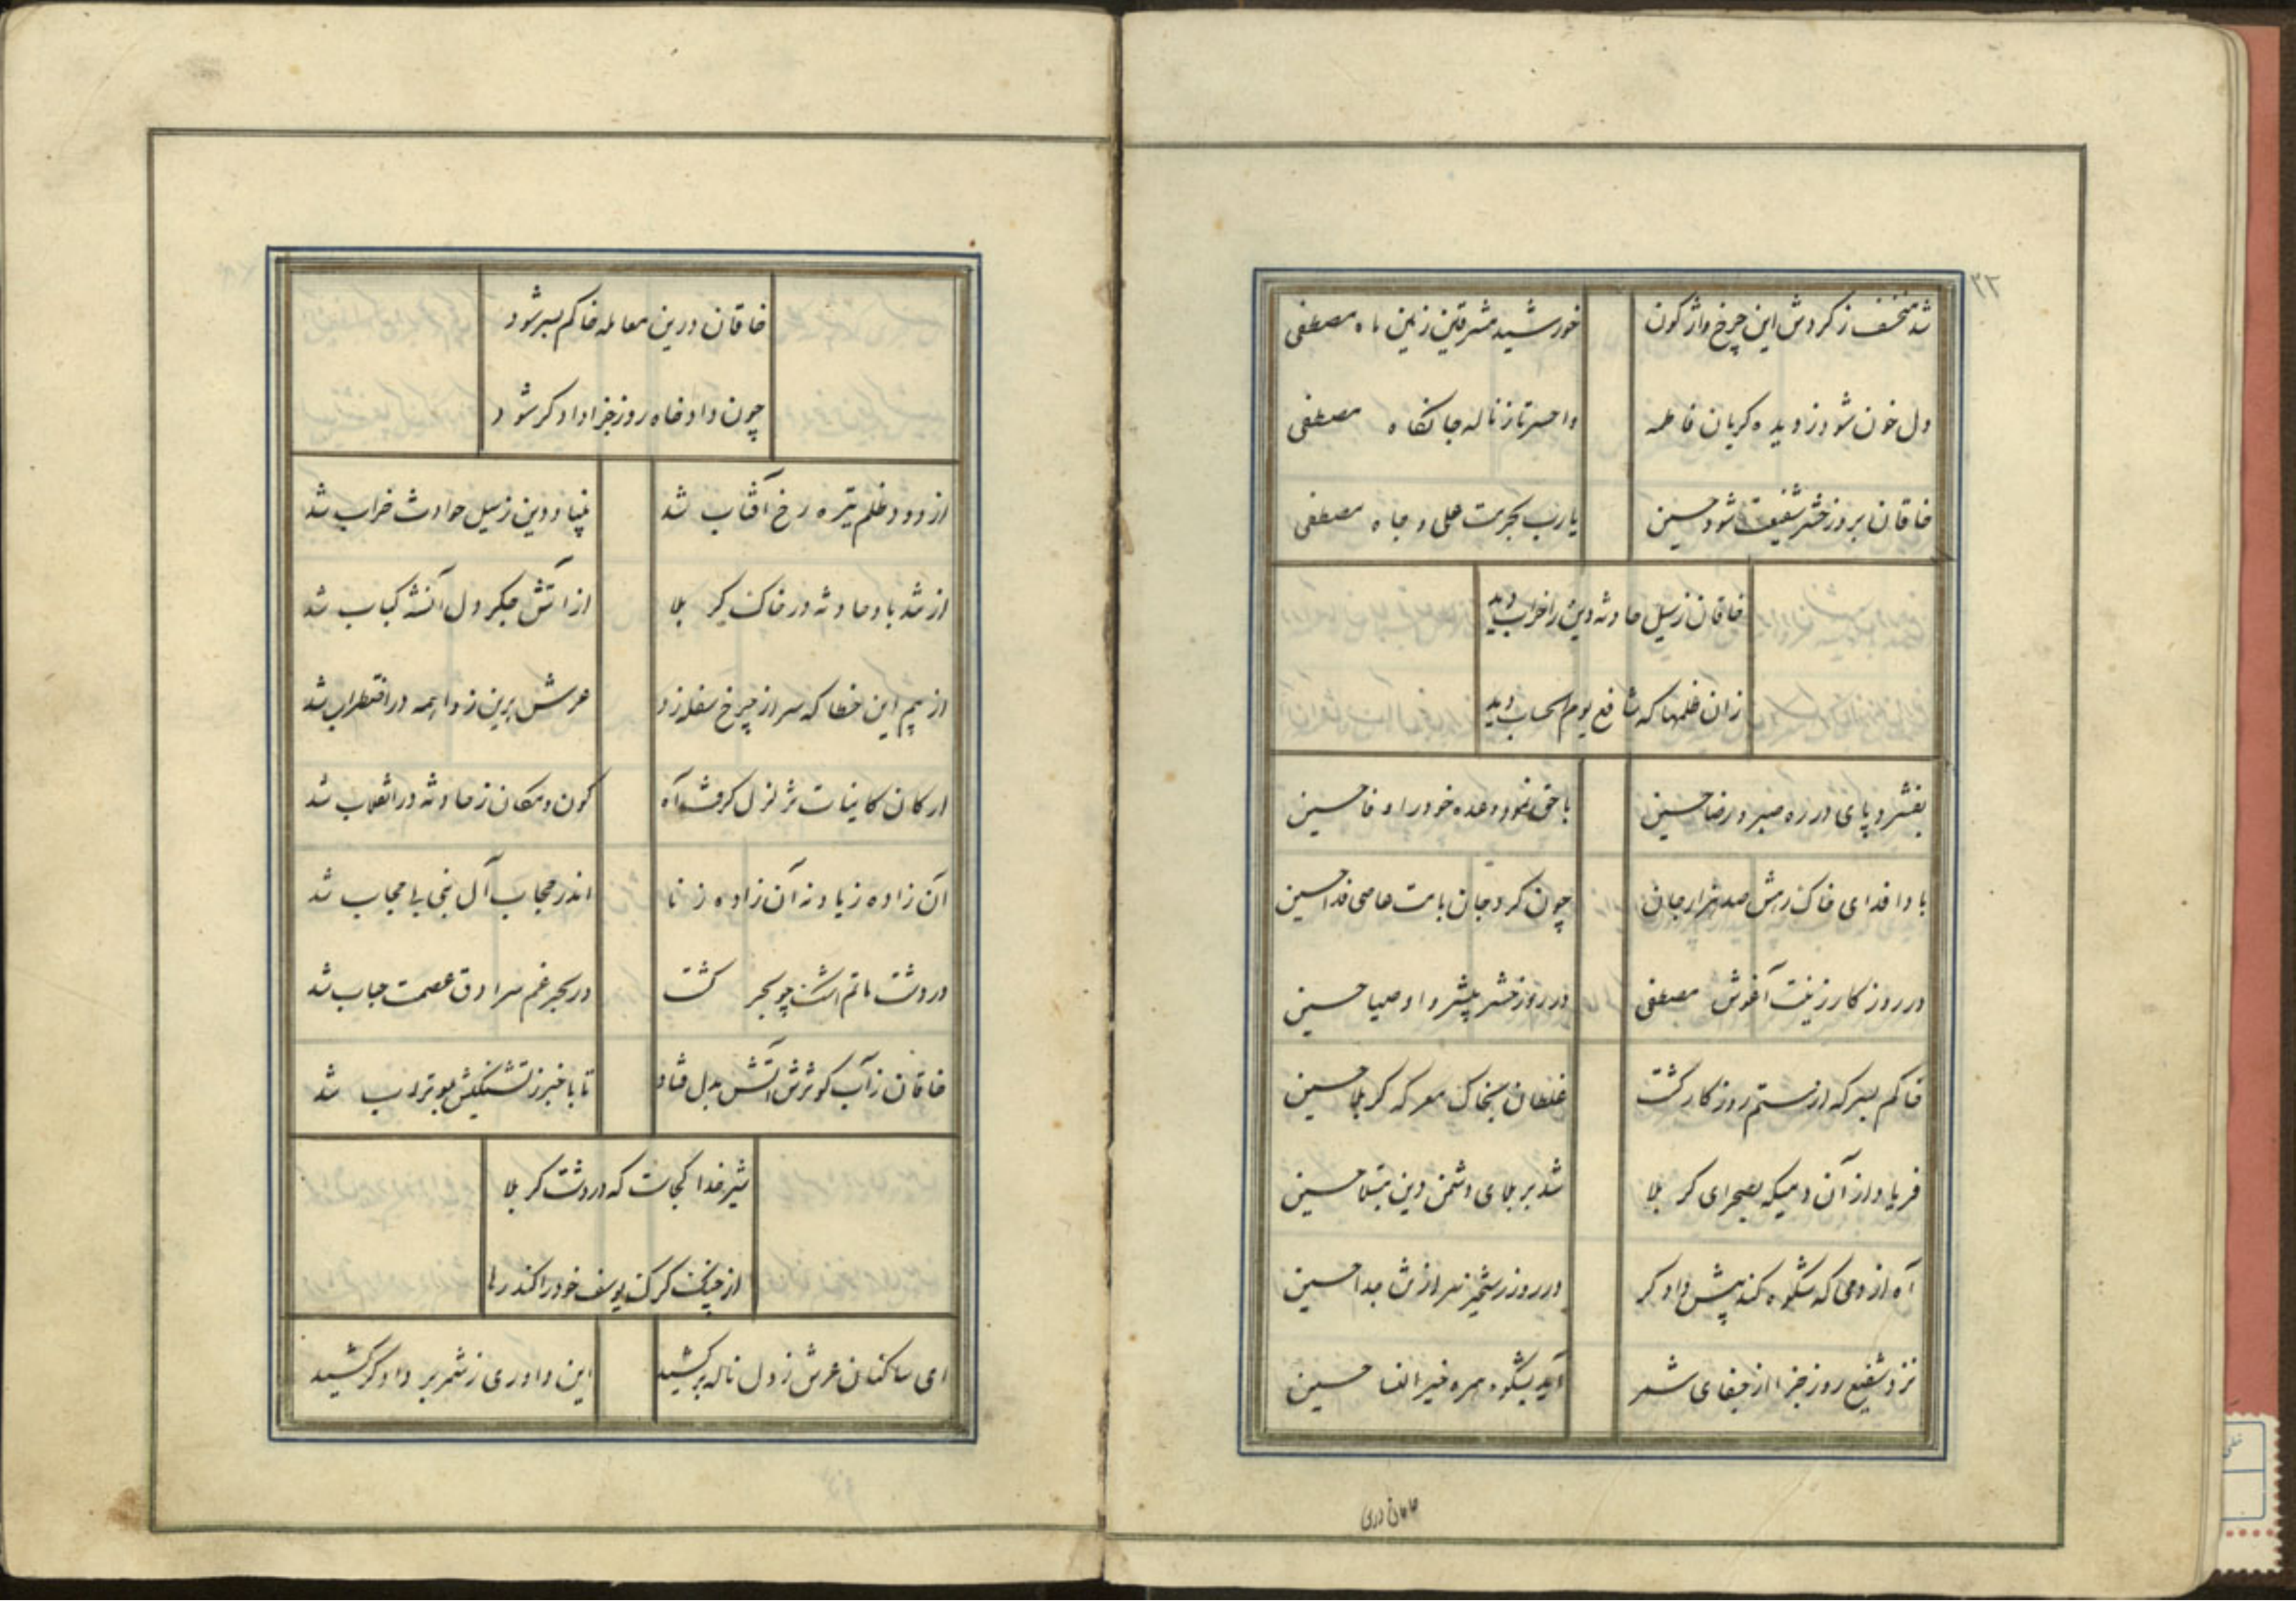 ۳۲
شد منخسف ز کردش این چرخ واژکون خورشید مشرقین زمین ماه مصطفی
دل خون شود ز دیده کریان فاطمه واحسرتا ز ناله جانکاه مصطفی
خاقان بروز حشر شفیعت شود حسین یا رب بحرمت علی و جاه مصطفی
خاقان ز سیل حادثه دین را خراب دید
زان ظلمها که شافع یوم الحساب دید
بفشرد پای در ره صبر و رضا حسین با حق نمود وعده خود را وفا حسین
بادا فدای خاک رهش صد هزار جان چون کرد جان بامت عاصی فدا حسین
در روزکار زینت آغوش مصطفی در روز حشر پیشرو اوصیا حسین
خاکم بسر که از ستم روزکار کشت غلطان بخاک معرکه کربلا حسین
فریاد از آن دمیکه بصحرای کربلا شد بر بلای دشمن دین مبتلا حسین
آه از دمی که شکوه کند پیش دادکر در روز رستخیز سر از تن جدا حسین
نزد شفیع روز جزا از جفای شمر آید بشکوه همره خیر النسا حسین
خاقان درین
خاقان درین معامله خاکم بسر شود
چون دادخواه روز جزا دادکر شود
از دود ظلم تیره رخ آفتاب شد بنیاد دین ز سیل حوادث خراب شد
از تندباد حادثه در خاک کربلا از آتش جکر دل آتش کباب شد
از بیم این خطا که سر از چرخ سفله زد عرش برین ز واهمه در اضطراب شد
ارکان کاینات تزلزل کرفت آه کون و مکان ز حادثه در انقلاب شد
آن زاده زیاد نه آن زاده زنا اندر حجاب آل نبی بی حجاب شد
در دشت ماتم اشک چو بحر کشت در بحر غم سرادق عصمت حباب شد
خاقان ز آب کوثرش آتش بدل فتاد تا با خبر ز تشنکیش بوتراب شد
شیر خدا کجاست که در دشت کربلا
از چنک کرک یوسف خود را کند رها
ای ساکنان عرش ز دل ناله برکشید این داوری ز شمر بر دادکر کشید